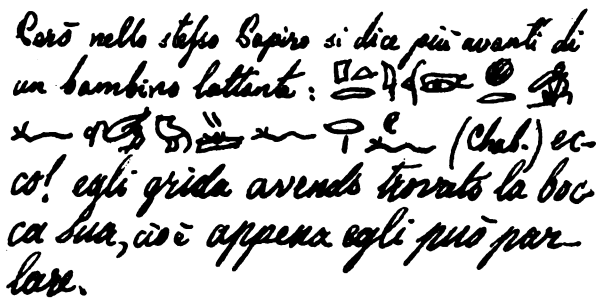 Però nello stesso Papiro si dice più avanti di
un bambino lattante :
(Chab.) ec-
co! egli grida avendo trovato la boc-
ca sua, cioè appena egli può par-
lare.